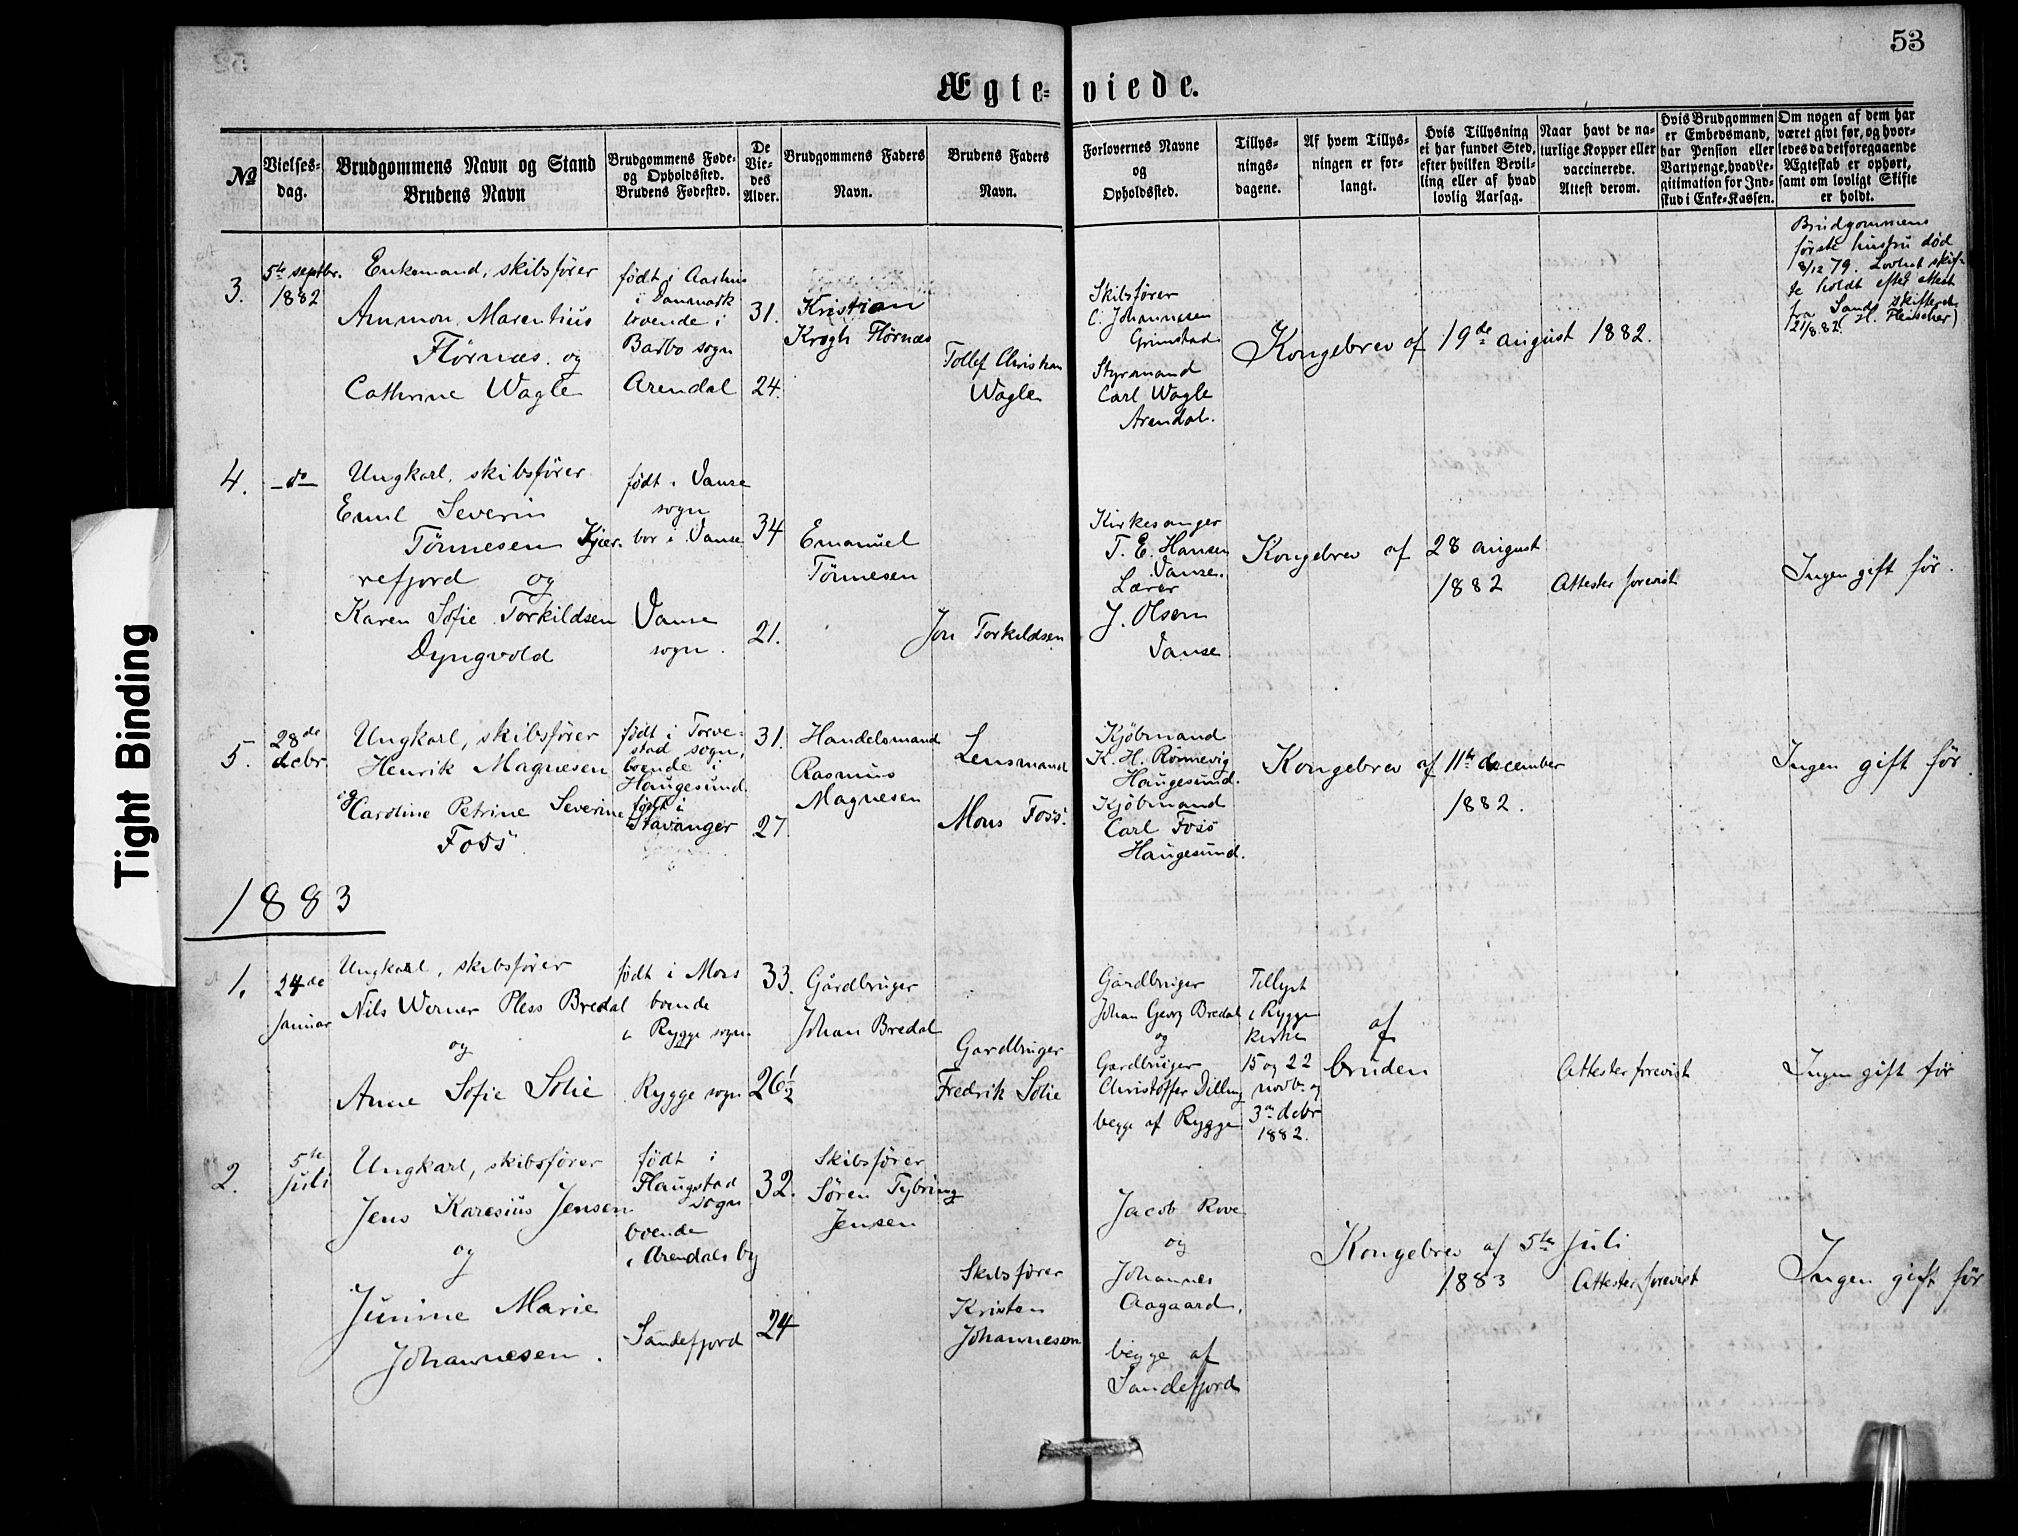 53
Ægte-viede.
№
Vielses-
dag.
Brudgommens Navn og Stand
Brudens Navn
Brudgommens Føde-
og Opholdssted.
Brudens Fødested.
De
Vie-
des
Alder.
Brudgommens Faders
Navn.
Brudens Faders
Navn.
Forlovernes Navne
og
Opholdssted.
Tillys-
nings-
dagene.
Af hvem Tillys-
ningen er for-
langt.
Hvis Tillysning
ei har fundet Sted,
efter hvilken Bevil-
ling eller af hvad
lovlig Aarsag.
Naar havt de na-
turlige Kopper eller
vaccinerede.
Attest derom.
Hvis Brudgommen
er Embedsmand,
har Pension eller
Vartpenge, hvad Le-
gitimation for Ind-
skud i Enke-Kassen.
Om nogen af dem har
været givt før, og hvor-
ledes da det foregaaende
Ægteskab er ophørt,
samt om lovligt Skifte
er holdt.
3.
5te septbr.
1882
Enkemand, skibsfører
Ammon Marentius
Flørnæs og
Cathrine Wagle
født i Aarhus
i Danmark
boende i
Barbo sogn
Arendal
31.
24.
Kristian
Krogh Flørnæs
Tollef Christian
Wagle
Skibsfører
C. Johannesen
Grimstad
Styrmand
Carl Wagle
Arendal.
Kongebrev af 19de august 1882.
Brudgommens
første hustru død
8/12 79. Lovligt skif-
te holdt efter attest
fra Sands skifteret
21/8.82. (H. Fleischer)
4.
-do-
Ungkarl, skibsfører
Emil Severin
Tönnesen Kjær-
refjord og
Karen Sofie Torkildsen
Dyngvold
født i Vanse
sogn
bor i Vanse
Vanse
sogn.
34
21.
Emanuel
Tönnesen
Jon Torkildsen
Kirkesanger
T. E. Hansen
Vanse.
Lærer
J. Olsen
Vanse
Kongebrev af 28 august
1882
Attester forevist
Ingen gift før.
5.
28de
debr.
Ungkarl, skibsfører
Henrik Magnesen
og Caroline Petrine Severine
Foss
født i Torve-
stad sogn,
boende i
Haugesund.
født i
Stavanger
31.
27
Handelsmand
Rasmus
Magnesen
Lensmand
Mons Foss.
Kjöbmand
K. H. Rönnevig
Haugesund.
Kjöbmand
Carl Foss
Haugesund.
Kongebrev af 11te december
1882.
Ingen gift før.
1883
1.
24de
Januar
Ungkarl, skibsfører
Nils Werner Pless Bredal
og
Anne Sofie Solie
født i Moss
boende
i Rygge sogn
Rygge sogn
33.
26½
Gårdbruger
Johan Bredal
Gardbruger
Fredrik Solie
Gårdbruger
Johan Georg Bredal
og
Gårdbruger
Christoffer Dilling
begge af Rygge
Tillyst
i Rygge
kirke
15 og 22
novb. og
3de debr
1882.
af
bruden
Attester forevist
Ingen gift før
2.
5te
juli
Ungkarl, skibsfører
Jens Karesius Jensen
og
Junine Marie
Johannesen.
født i
Flaugstad
sogn
boende
i Arendals by
Sandefjord
32.
24
Skibsfører
Sören Tybring
Jensen
Skibsfører
Kristen
Johannesen
Jacob Rove
og
Johannes
Aagaard,
begge af
Sandefjord
Kongebrev af 5te juli
1883
Attester forevist
Ingen gift før
Tight Binding